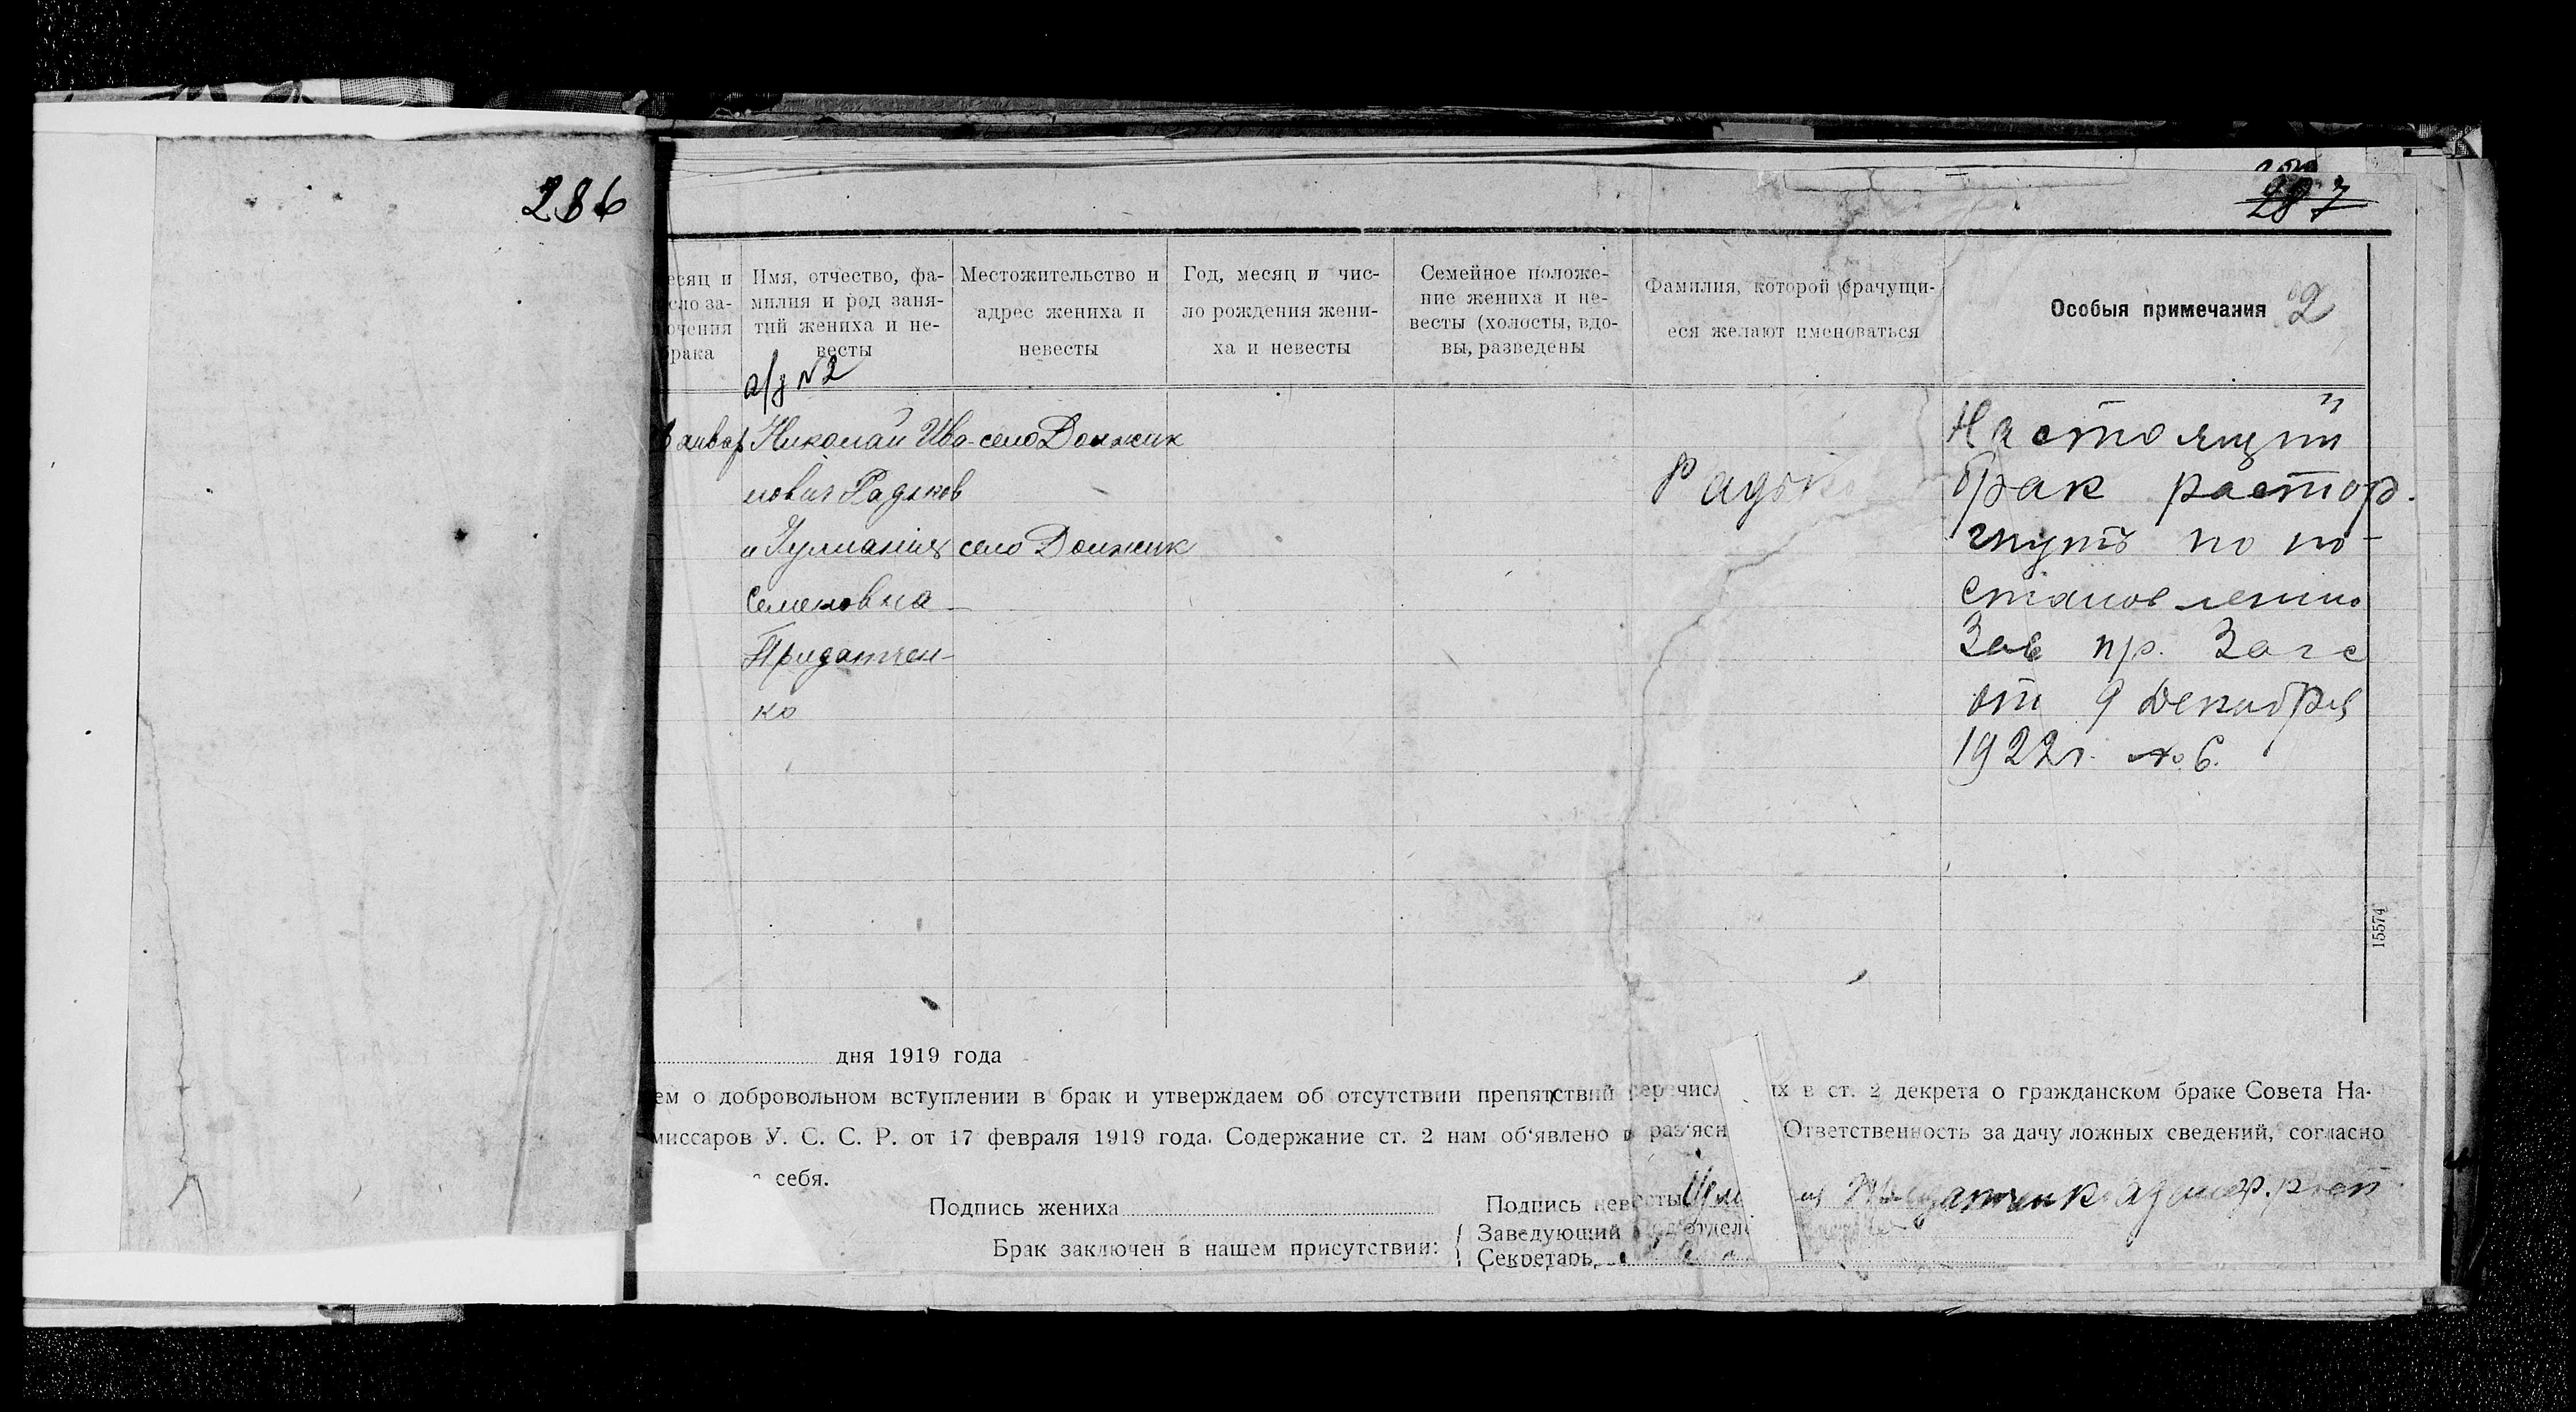 286
287
есяц и
сло за-
ючения
брака
Имя, отчество, фа-
милия и род заня-
тий жениха и не-
весты
а/з №2
Местожительство и
адрес жениха и
невесты
Год, месяц и чис-
ло рождения жени-
ха и невесты
Семейное положе-
ние жениха и не-
весты (холосты, вдо-
вы, разведены
Фамилия, которой брачущи-
еся желают именоваться
Особыя примечания 2
январ
Николай Ива-
нович Радьков
и
Семеновна
Придатчен-
ко
село Должик
село Должик
Радьк
Настоящий
брак растор-
гнутъ по по-
становлению
Зав пр. Загс
от 9 Декабря
1922г. No. 6.
15574
дня 1919 года
ем о добровольном вступлении в брак и утверждаем об отсутствии препятствий перечисл их в ст. 2 декрета о гражданском браке Совета На-
миссаров У. С. С. Р. от 17 февраля 1919 года. Содержание ст. 2 нам об'явлено и раз'ясн Ответственность за дачу ложных сведений, согласно
себя.
Подпись жениха
Подпись невесты
Брак заключен в нашем присутствии:
Заведующий подотдело
Секретарь